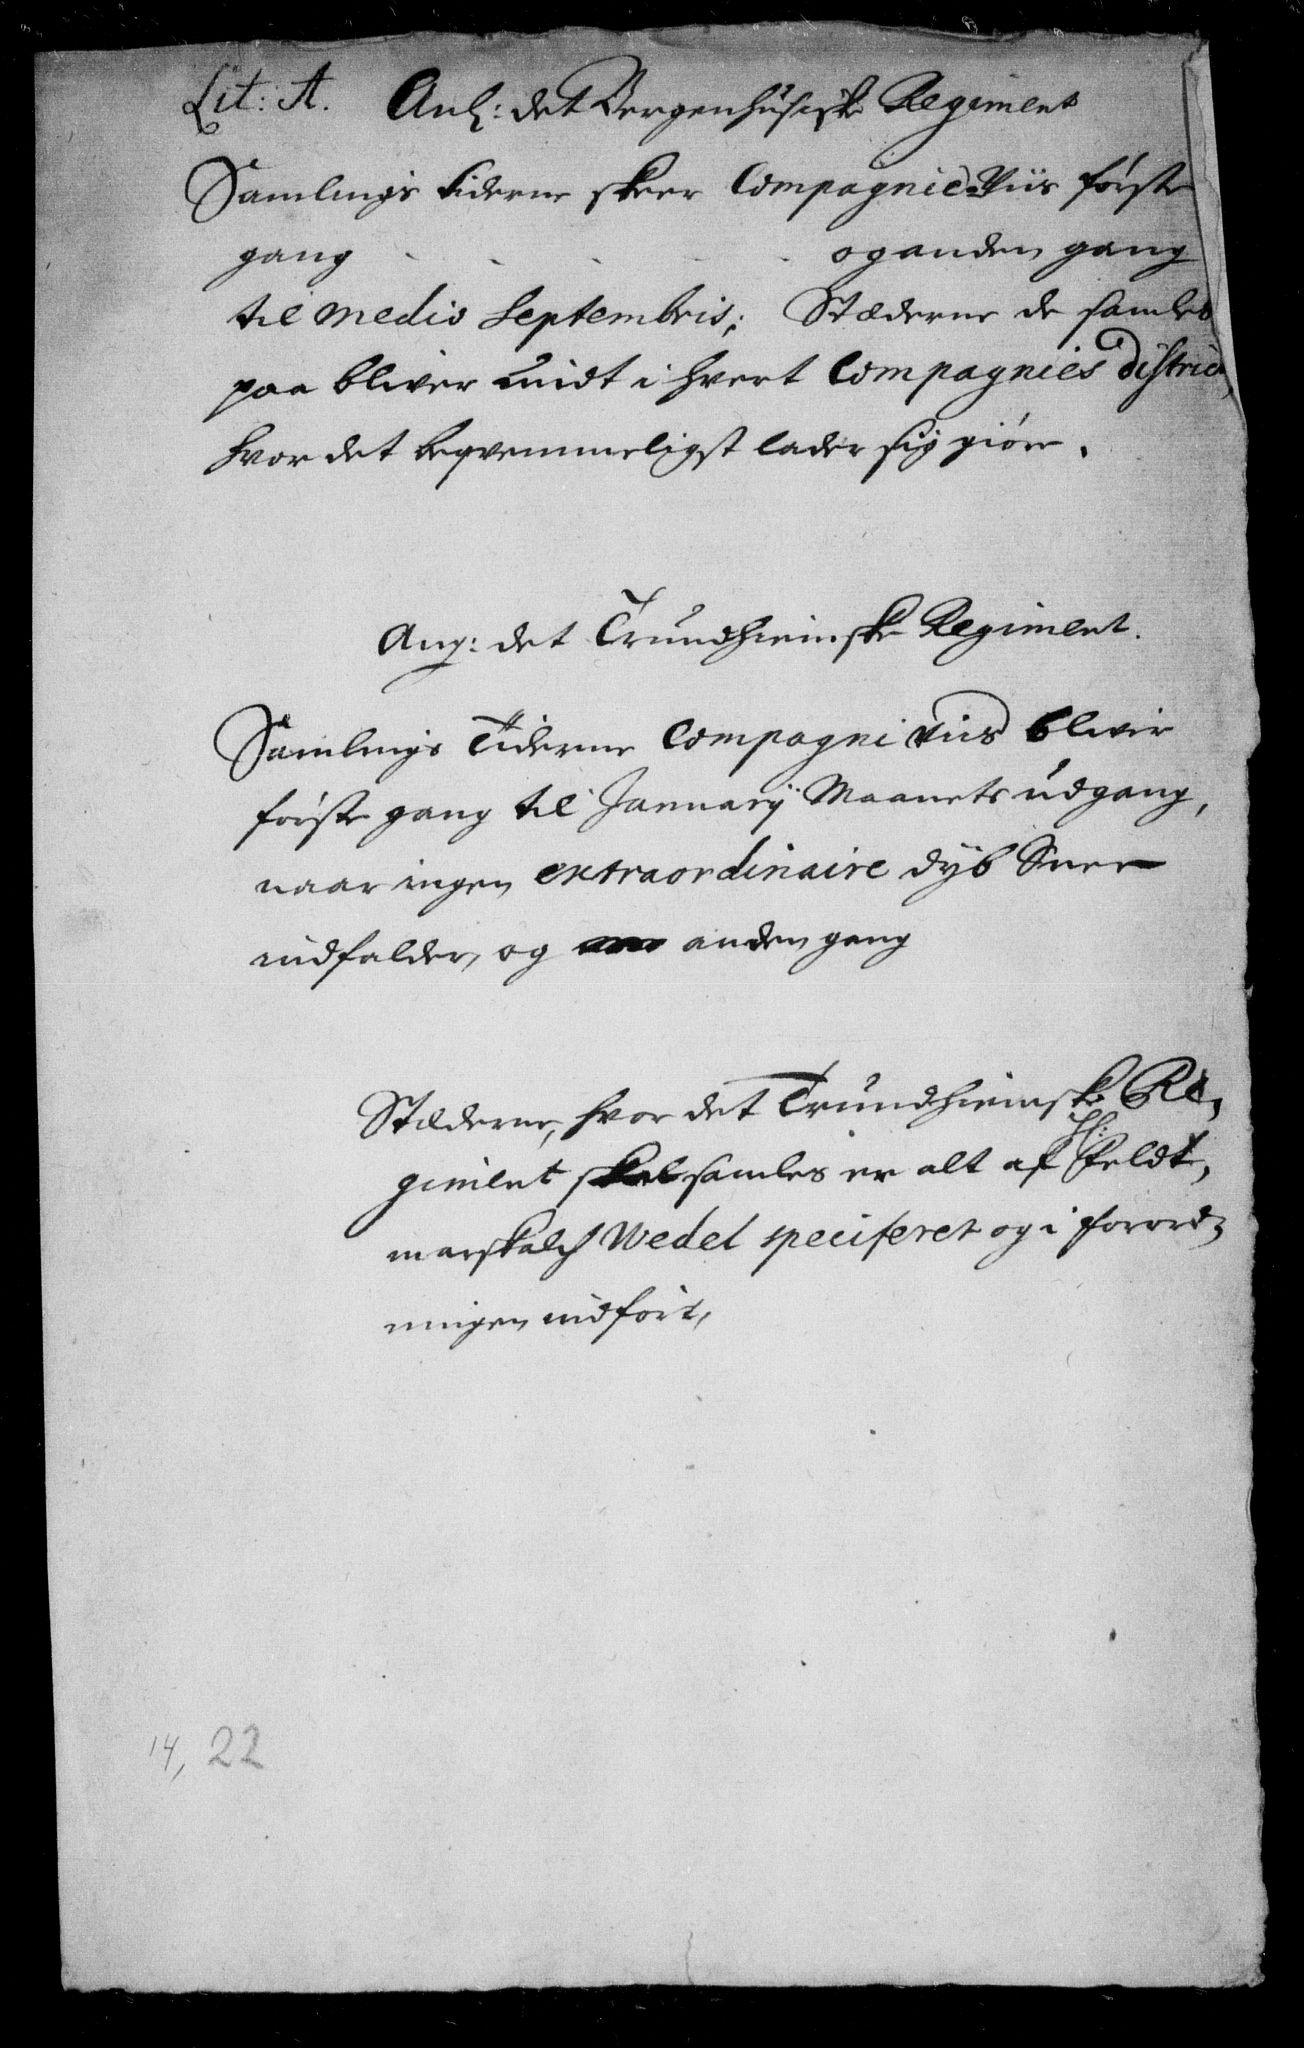 Lit: A. Anl: det Bergenhusiske Regiment
Samlings tiderne skeer Compagnie Viis første
gang - - - - - og anden gang
til medio Septembris; Stæderne de samles
paa bliver midt i hvert Compagnies District,
hvor det beqvemmeligst lader sig giøre.
Ang: det Trundhiemske Regiment.
Samlings Tiderne Compagni viis blivir
første gang til Januarij Maanets udgang,
naar ingen extraordinaire dyb Snee
indfalder, og anden gang
Stæderne, hvor det Trundhiemske Re-
giment skal samles er alt af Hr: Feldt-
marskalch Wedel specificeret og i Forord-
ningen indført,
14, 22